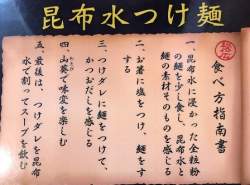 昆布水つけ麺
食べ方指南書
一、昆布水に浸かった全粒粉
の麺を少し食し、昆布水と
麺の素材そのものを感じる
二、お薯に塩をつけ、麺をす
する
三、つけダレに麺をつけて、
かつおだしを感じる
四、山葵で味変を楽しむ
わさび
五、最後は、つけダレを昆布
水で割ってスープを飲む